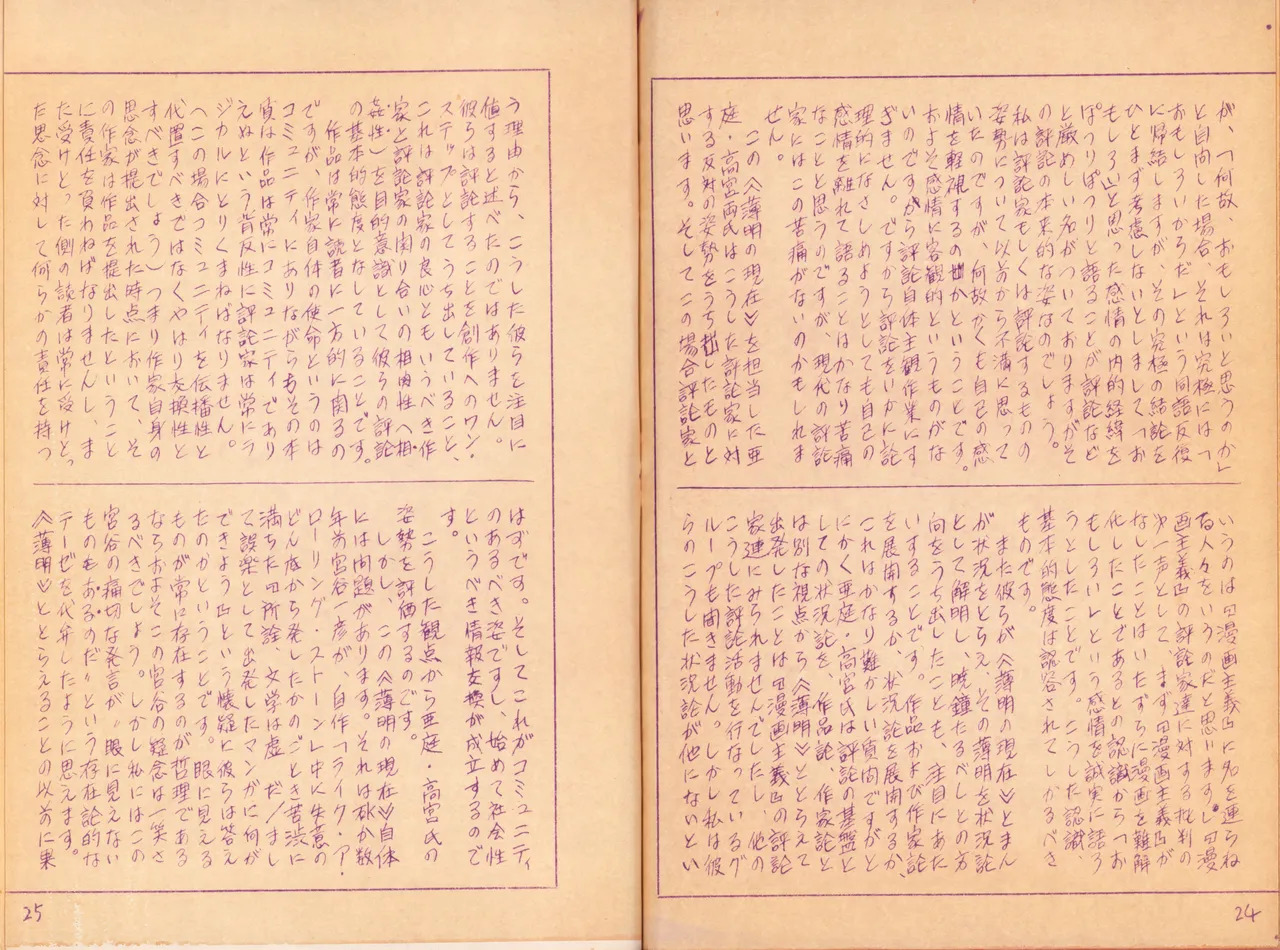 が、「何故、おもしろいと思うのか」
と自問した場合、それは究極には「
おもしろいからだ」という同語反復
に帰結しますが、その究極の結論を
ひとまず考慮しないとしまして「お
もしろい」と思った感情の内的経緯を
ぽつりぽつりと語ることが評論など
と厳めしい名がついておりますがそ
の評論の本来的な姿なのでしょう。
私は評論家もしくは評論するものの
姿勢について以前から不満に思って
いたのですが、何故かくも自己の感
情を軽視するのかということです。
およそ感情に客観的というものがな
いのですから評論自体主観作業にす
ぎません。ですから評論をいかに論
理的になさしめようとしても自己の
感情を離れて語ることはかなり苦痛
なことと思うのですが、現代の評論
家にはこの苦痛がないのかもしれま
せん。
この≪薄明の現在≫を担当した亜
庭・高宮両氏はこうした評論家に対
する反対の姿勢をうち出したものと
思います。そしてこの場合評論家と
いうのは『漫画主義』に名を連らね
る人々をいうのだと思います。『漫
画主義』の評論家達に対する批判の
第一声として、まず『漫画主義』が
なしたことはいたずらに漫画を難解
化したことであるとの認識から「お
もしろい」という感情を誠実に語ろ
うとしたことです。こうした認識、
基本的態度は認容されてしかるべき
ものです。
また彼らが≪薄明の現在≫とまん
が状況をとらえ、その薄明を状況論
として解明し、暁鐘たるべしとの方
向をうち出したことも、注目にあた
いすることです。作品および作家論
を展開するか、状況論を展開するか、
これはかなり難かしい質問ですがと
にかく亜庭・高宮氏は評論の基盤と
しての状況論を、作品論、作家論と
は別な視点から≪薄明≫ととらえて
出発したことは『漫画主義』の評論
家連にみられませんでしたし、他の
こうした評論活動を行なっているグ
ループも聞きません。しかし私は彼
らのこうした状況論が他にないとい
24
う理由から、こうした彼らを注目に
値すると述べたのではありません。
彼らは評論することを創作へのワン・
ステップとしてうち出していること、
これは評論家の良心ともいうべき作
家と評論家の関り合いの相肉性（相
姦性）を目的意識として彼らの評論
の基本的態度となしていることです。
作品は常に読者に一方的に関るの
ですが、作家自体の使命というのは
コミュニティにありながらもその本
質は作品は常にコミュニティであり
えぬという背反性に評論家は常にラ
ジカルにとりくまねばなりません。
（この場合コミュニティを伝播性と
代置すべきではなくやはり交換性と
すべきでしょう）つまり作家自身の
思念が提出された時点において、そ
の作家は作品を提出したということ
に責任を負わねばなりませんし、ま
た受けとった側の読者は常に受けとっ
た思念に対して何らかの責任を持つ
はずです。そしてこれがコミュニティ
のあるべき姿ですし、始めて社会性
というべき情報交換が成立するので
す。
こうした観点から亜庭 高宮氏の
姿勢を評価するのです。
しかし、この≪薄明の現在≫自体
には問題があります。それは秋か数
年前宮谷一彦が、自作「ライク・ア・
ローリング・ストーン」中に失意の
どん底から発したかのごとき苦渋に
満ちた『所詮、文学は虚 だ／まし
て誤楽として出発したマンガに何が
できよう』という懐疑に彼らは答え
たのかということです。眼に見える
ものが常に存在するのが哲理である
ならおよそこの宮谷の疑念は一笑さ
るべきでしょう。しかし私にはこの
宮谷の痛切な発言が〝眼に見えない
ものもあるのだ〟という存在論的な
テーゼを代弁したように思えます。
≪薄明≫ととらえることの以前に果
25